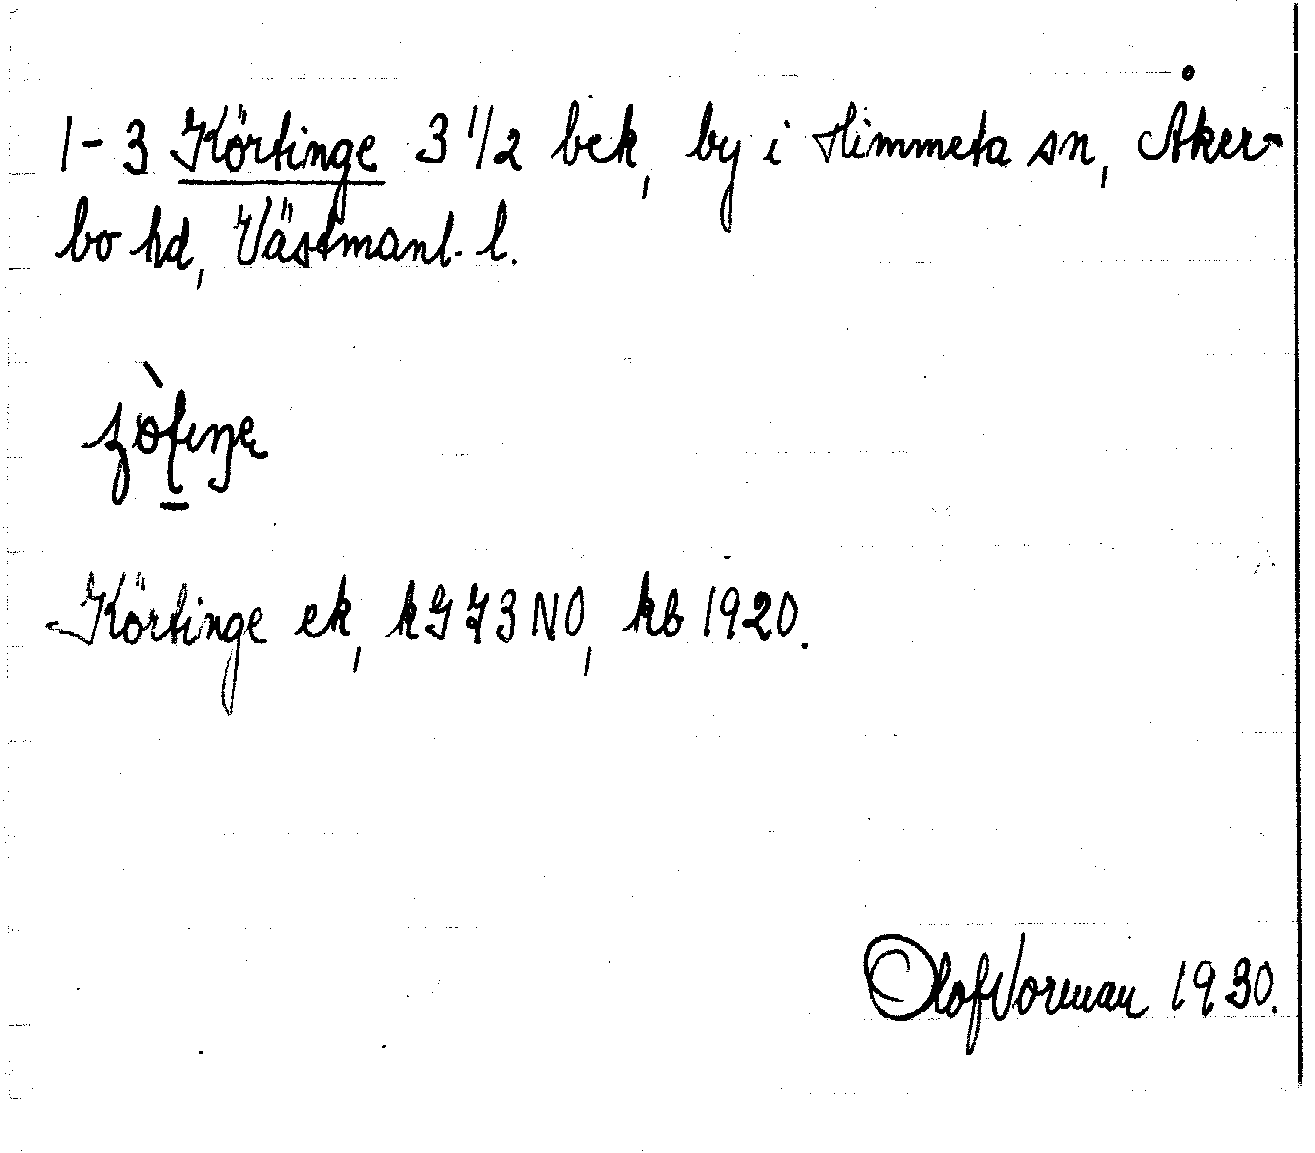 1-3 Körtinge 3 1/2 bek, by i Himmeta sn, Åker-
bo hd, Västmanl. l.
Körtinge ek, kGJ3NO, kb 1920.
Olof Vorman 1930.